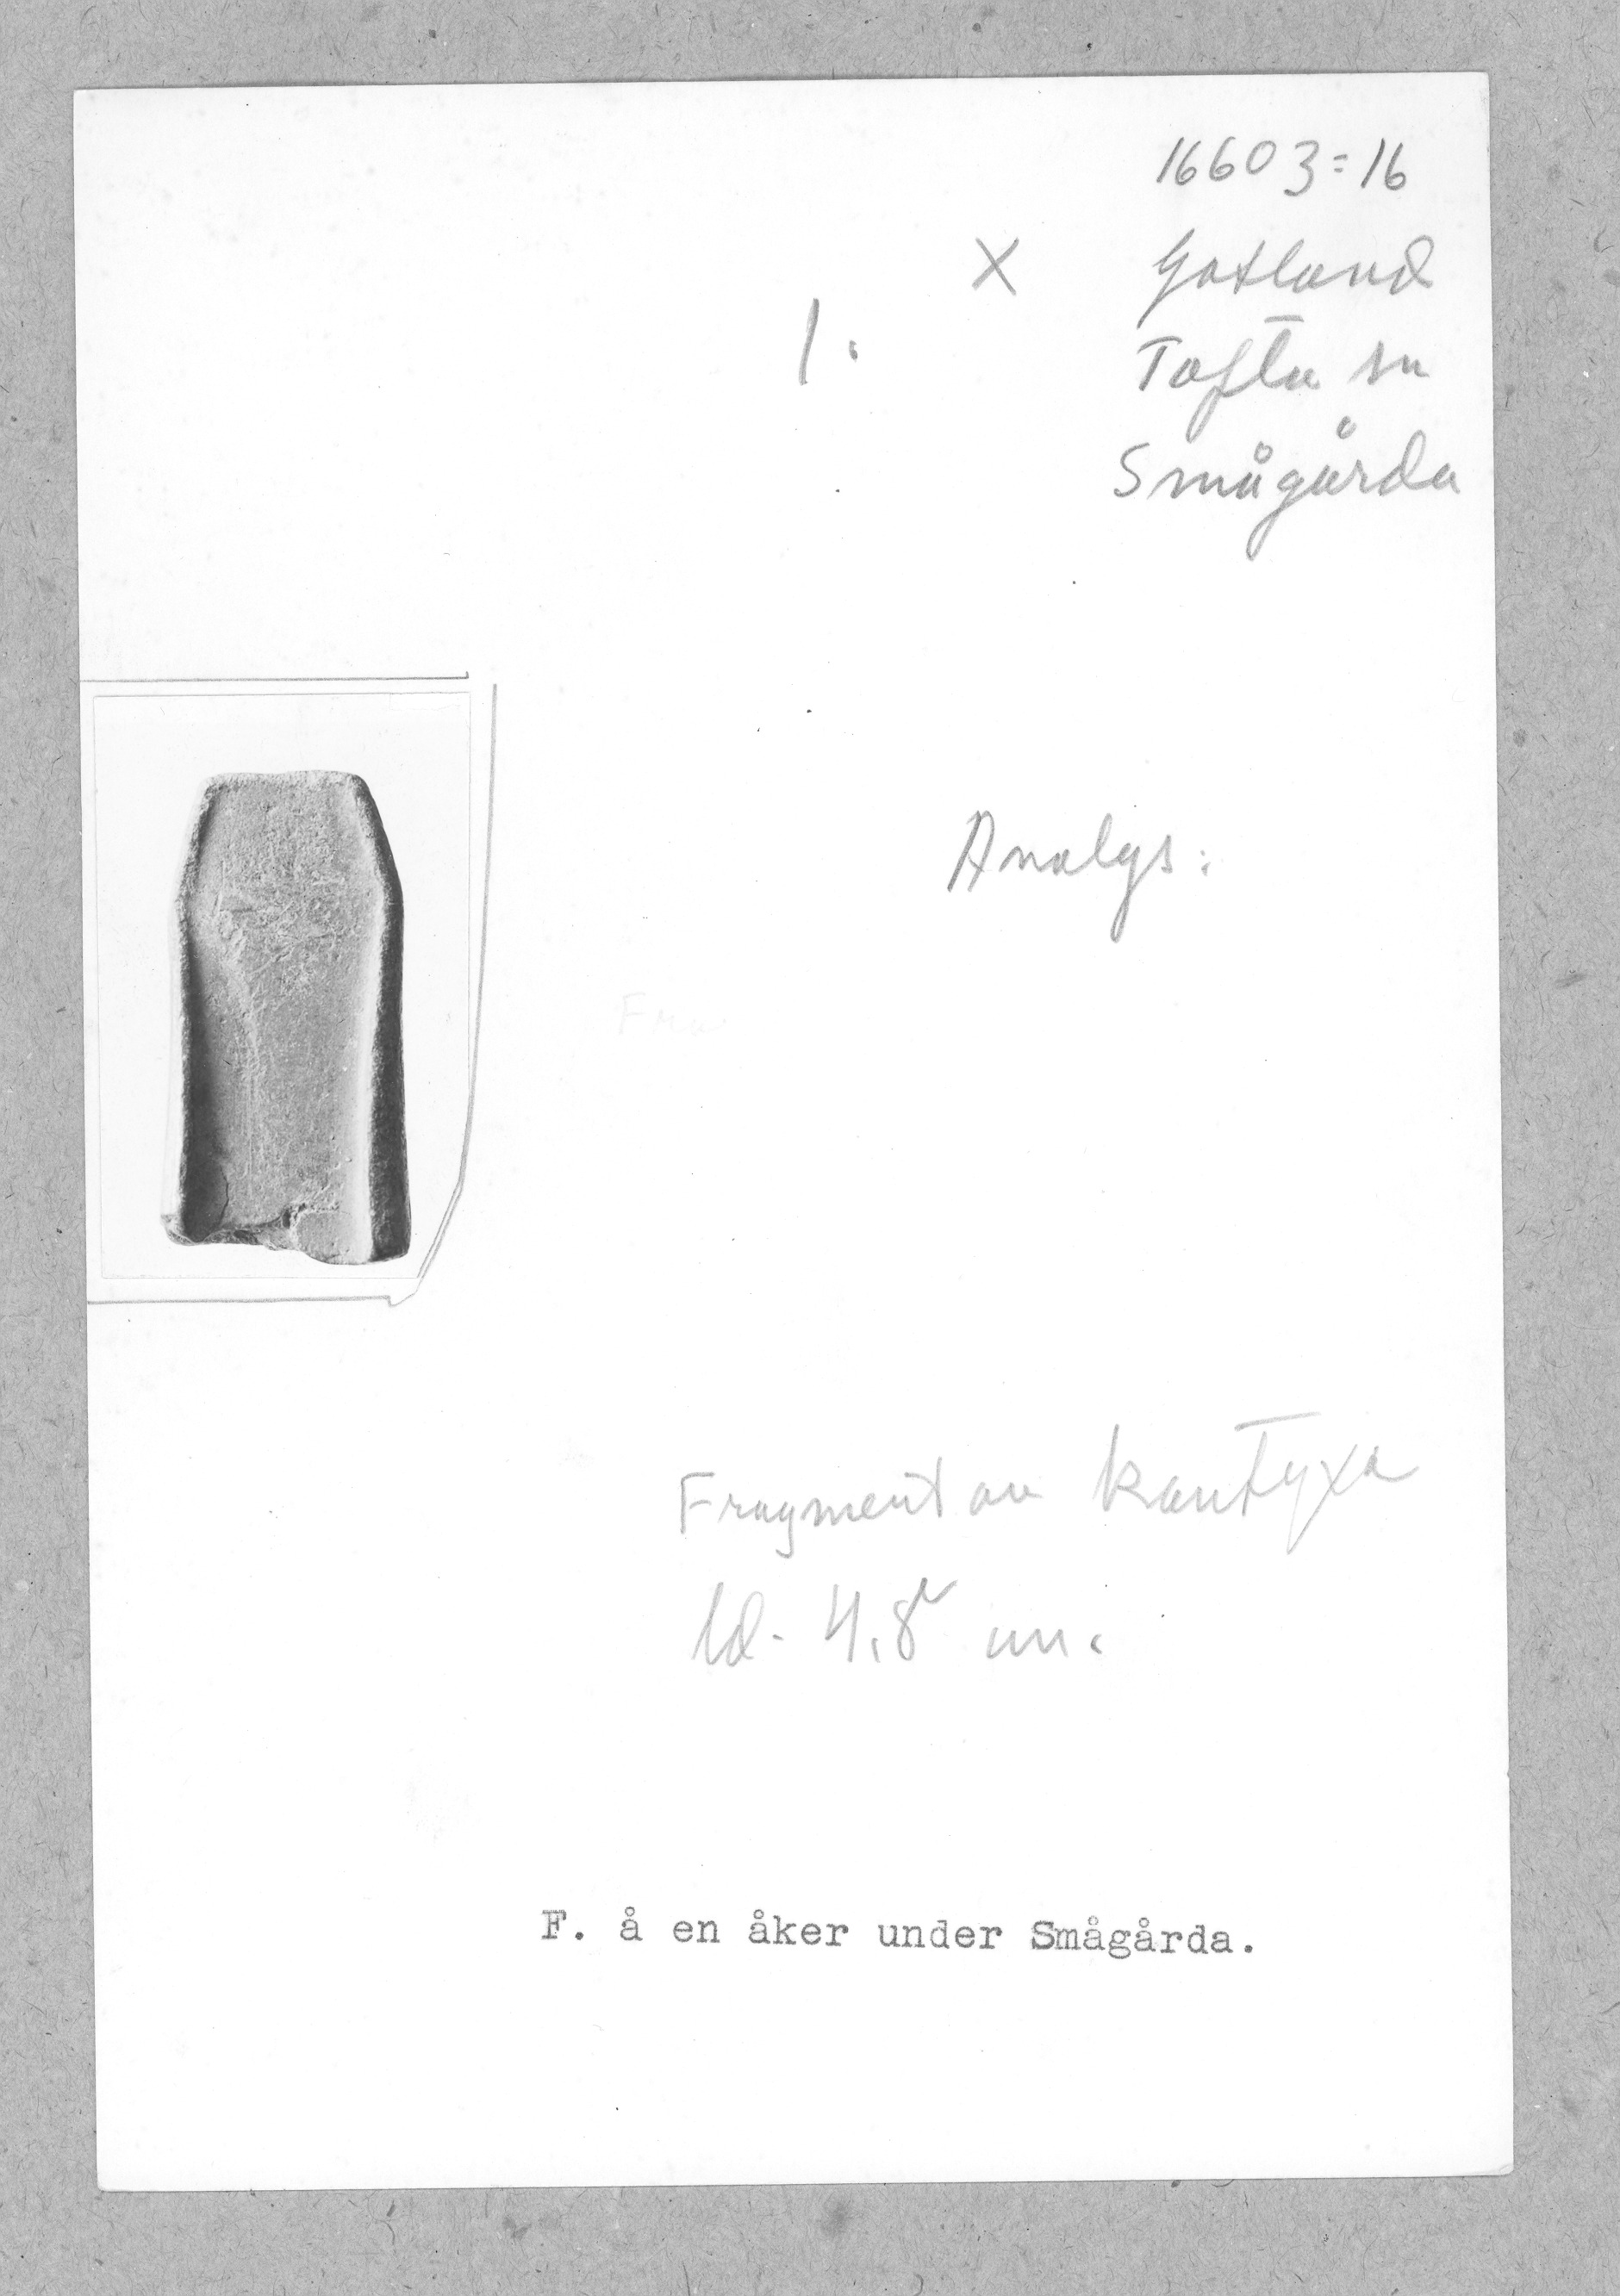 16603:16
X Gotland
1. Tofta sn
Smågårda
Analys:
Fra
Fragment av kantyxa
ld. 4,8 cm.
F. å en åker under Smågårda.